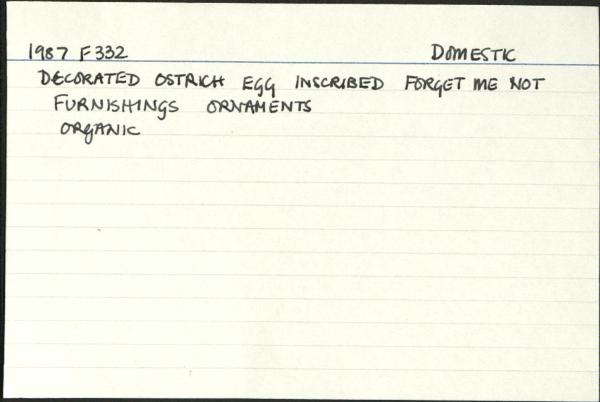 1987 F332 DOMESTIC
DECORATED OSTRICH EGG INSCRIBED FORGET ME NOT
FURNISHINGS ORNAMENTS
ORGANIC